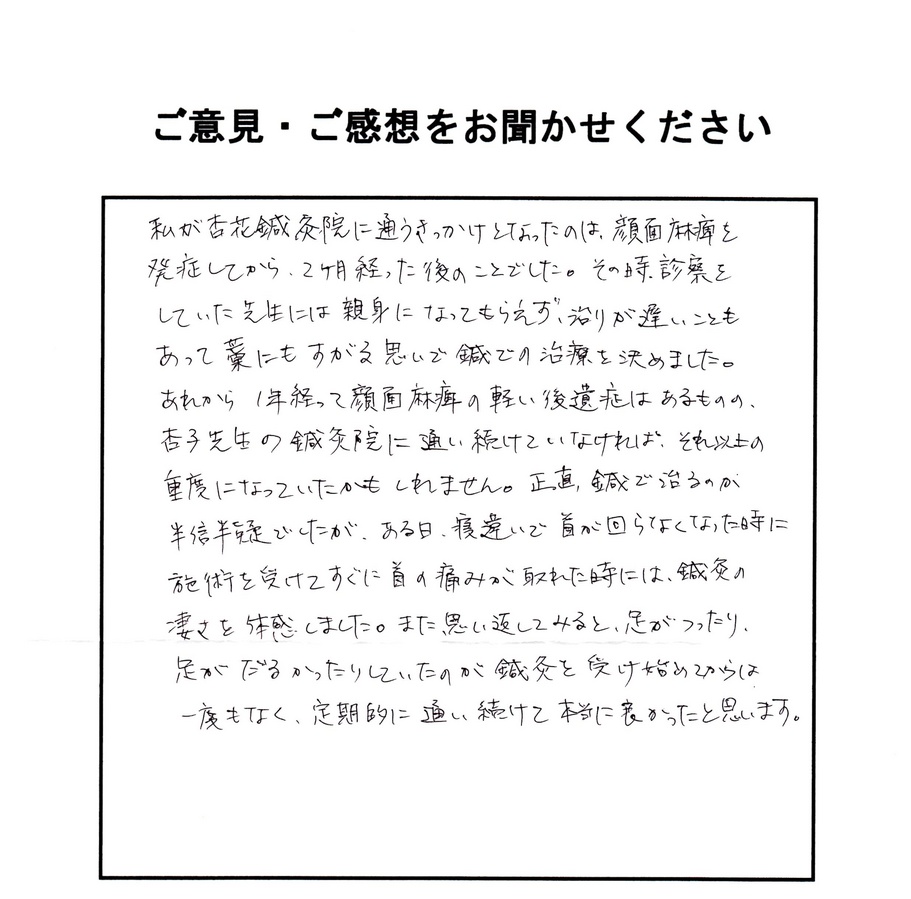 ご意見・ご感想をお聞かせください
私が杏花鍼灸院に通うきっかけとなったのは、顔面麻痺を
発症してから、2ヶ月経った後のことでした。その時、診察を
していた先生には親身になってもらえず、治りが遅いことも
あって藁にもすがる思いで鍼での治療を決めました。
あれから1年経って顔面麻痺の軽い後遺症はあるものの、
杏子先生の鍼灸院に通い続けていなければ、それ以上の
重度になっていたかもしれません。正直、鍼で治るのが
半信半疑でしたが、ある日、寝違いで首が回らなくなった時に
施術を受けてすぐに首の痛みが取れた時には、鍼灸の
凄さを体感しました。また思い返してみると、足がつったり、
足がだるかったりしていたのが鍼灸を受け始めてからは
一度もなく、定期的に通い続けて本当に良かったと思います。